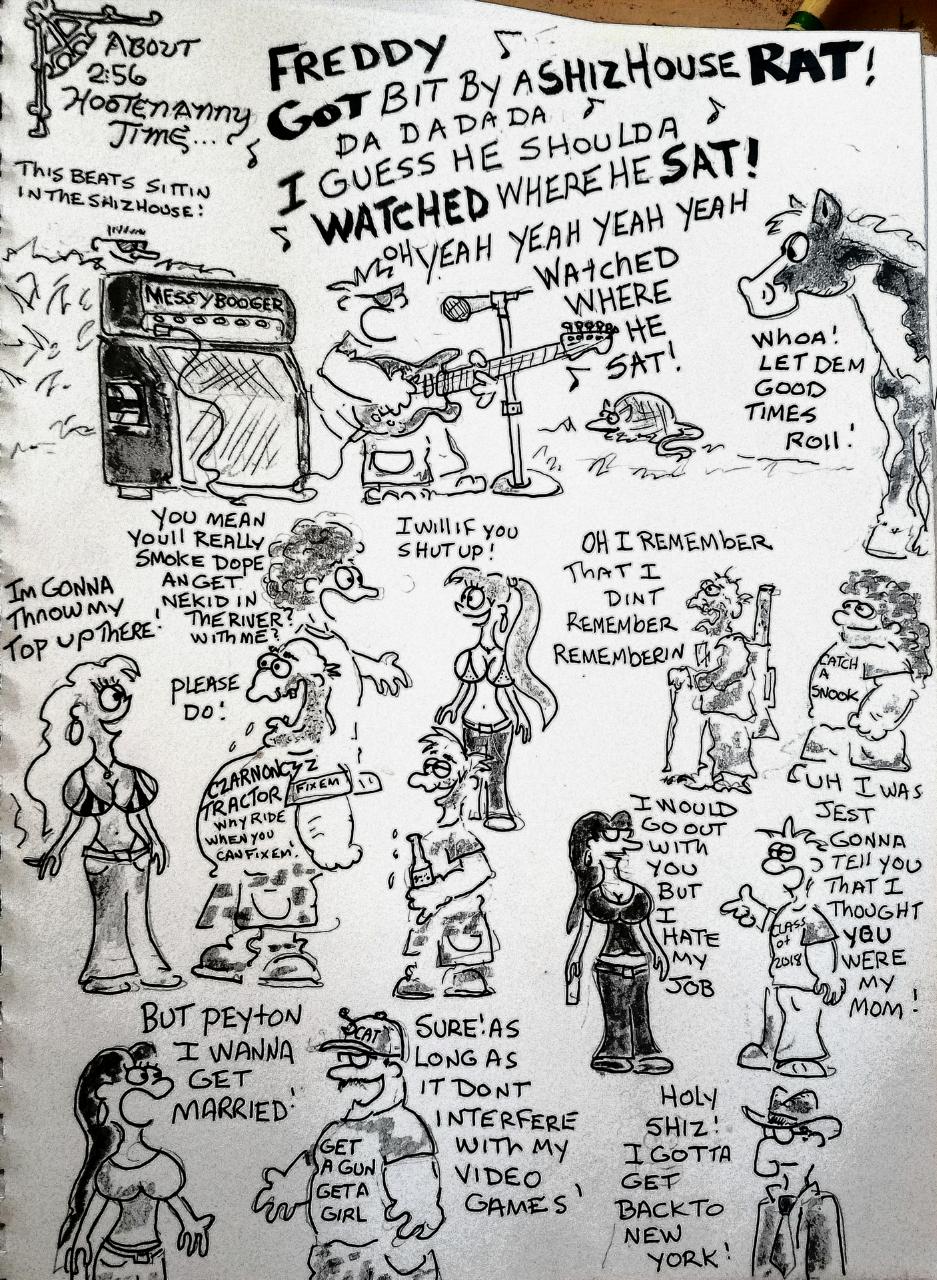 ABOUT
2:56
HOOTENANNY
TIME...
FREDDY
GOT BIT BY A SHIZHOUSE RAT!
DA DA DA DA DA
I GUESS HE SHOULDA
WATCHED WHERE HE SAT!
OH YEAH YEAH YEAH YEAH YEAH
WATCHED
WHERE
HE
SAT!
THIS BEATS SITTIN
IN THE SHIZHOUSE!
MESSYBOOGER
WHOA!
LET DEM
GOOD
TIMES
ROLL!
YOU MEAN
YOULL REALLY
SMOKE DOPE
AN GET
NEKID IN
THE RIVER
WITH ME?
I WILL IF YOU
SHUT UP!
IM GONNA
THROW MY
TOP UP THERE!
PLEASE
DO!
CZARNONCYZ
TRACTOR
WHY RIDE
WHEN YOU
CAN FIXEM!
FIXEM
OH I REMEMBER
THAT I
DINT
REMEMBER
REMEMBERIN
CATCH
A
SNOOK
I WOULD
GO OUT
WITH
YOU
BUT
I
HATE
MY
JOB
UH I WAS
JEST
GONNA
TELL YOU
THAT I
THOUGHT
YOU
WERE
MY
MOM!
CLASS
OF
2018
BUT PEYTON
I WANNA
GET
MARRIED!
CAT
GET
A GUN
GET A
GIRL
SURE! AS
LONG AS
IT DONT
INTERFERE
WITH MY
VIDEO
GAMES!
HOLY
SHIZ!
I GOTTA
GET
BACK TO
NEW
YORK!